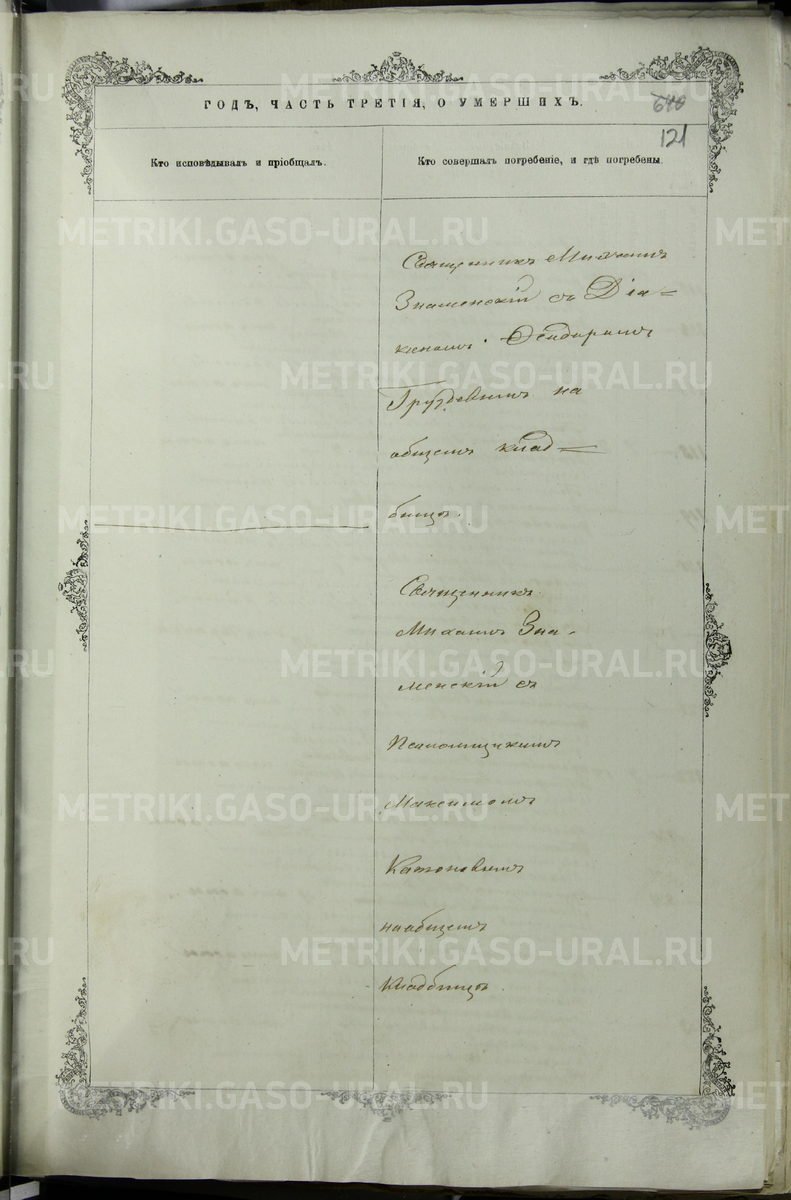 ГОДЪ, ЧАСТЬ ТРЕТІЯ, О УМЕРШИХЪ.
640
121
Кто исповѣдывалъ и пріобщалъ.
Кто совершалъ погребеніе, и гдѣ погребены.
Священникъ Михаилъ
Знаменскій съ Діа=
кономъ Ѳеодоромъ
Груздевымъ на
общемъ клад=
бищѣ.
Священникъ
Михаилъ Зна-
менскій съ
Псаломщикомъ
Максимомъ
на общемъ
Кладбищѣ.
METRIKI.GASO-URAL.RU